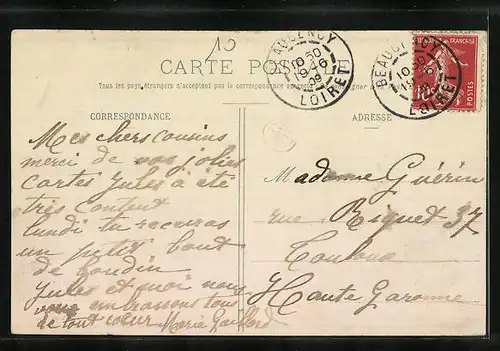 10
CARTE POSTALE
BEAUGENCY
10 50
19-6
09
LOIRET
BEAUGENCY
10 50
19-6
09
LOIRET
FRANÇAISE
10
POSTES
Tous les pays étrangers n'acceptent pas la correspondance
CORRESPONDANCE
ADRESSE
Mes chers cousins
merci de vos jolies
cartes Jules à été
très content
lundi tu recevras
un petit bout
de boudin
Jules et moi nous
vous embrassons tous
de tout cœur Marie Gaillard
Madame Guérin
rue Riquet 37
Toulouse
Haute Garonne